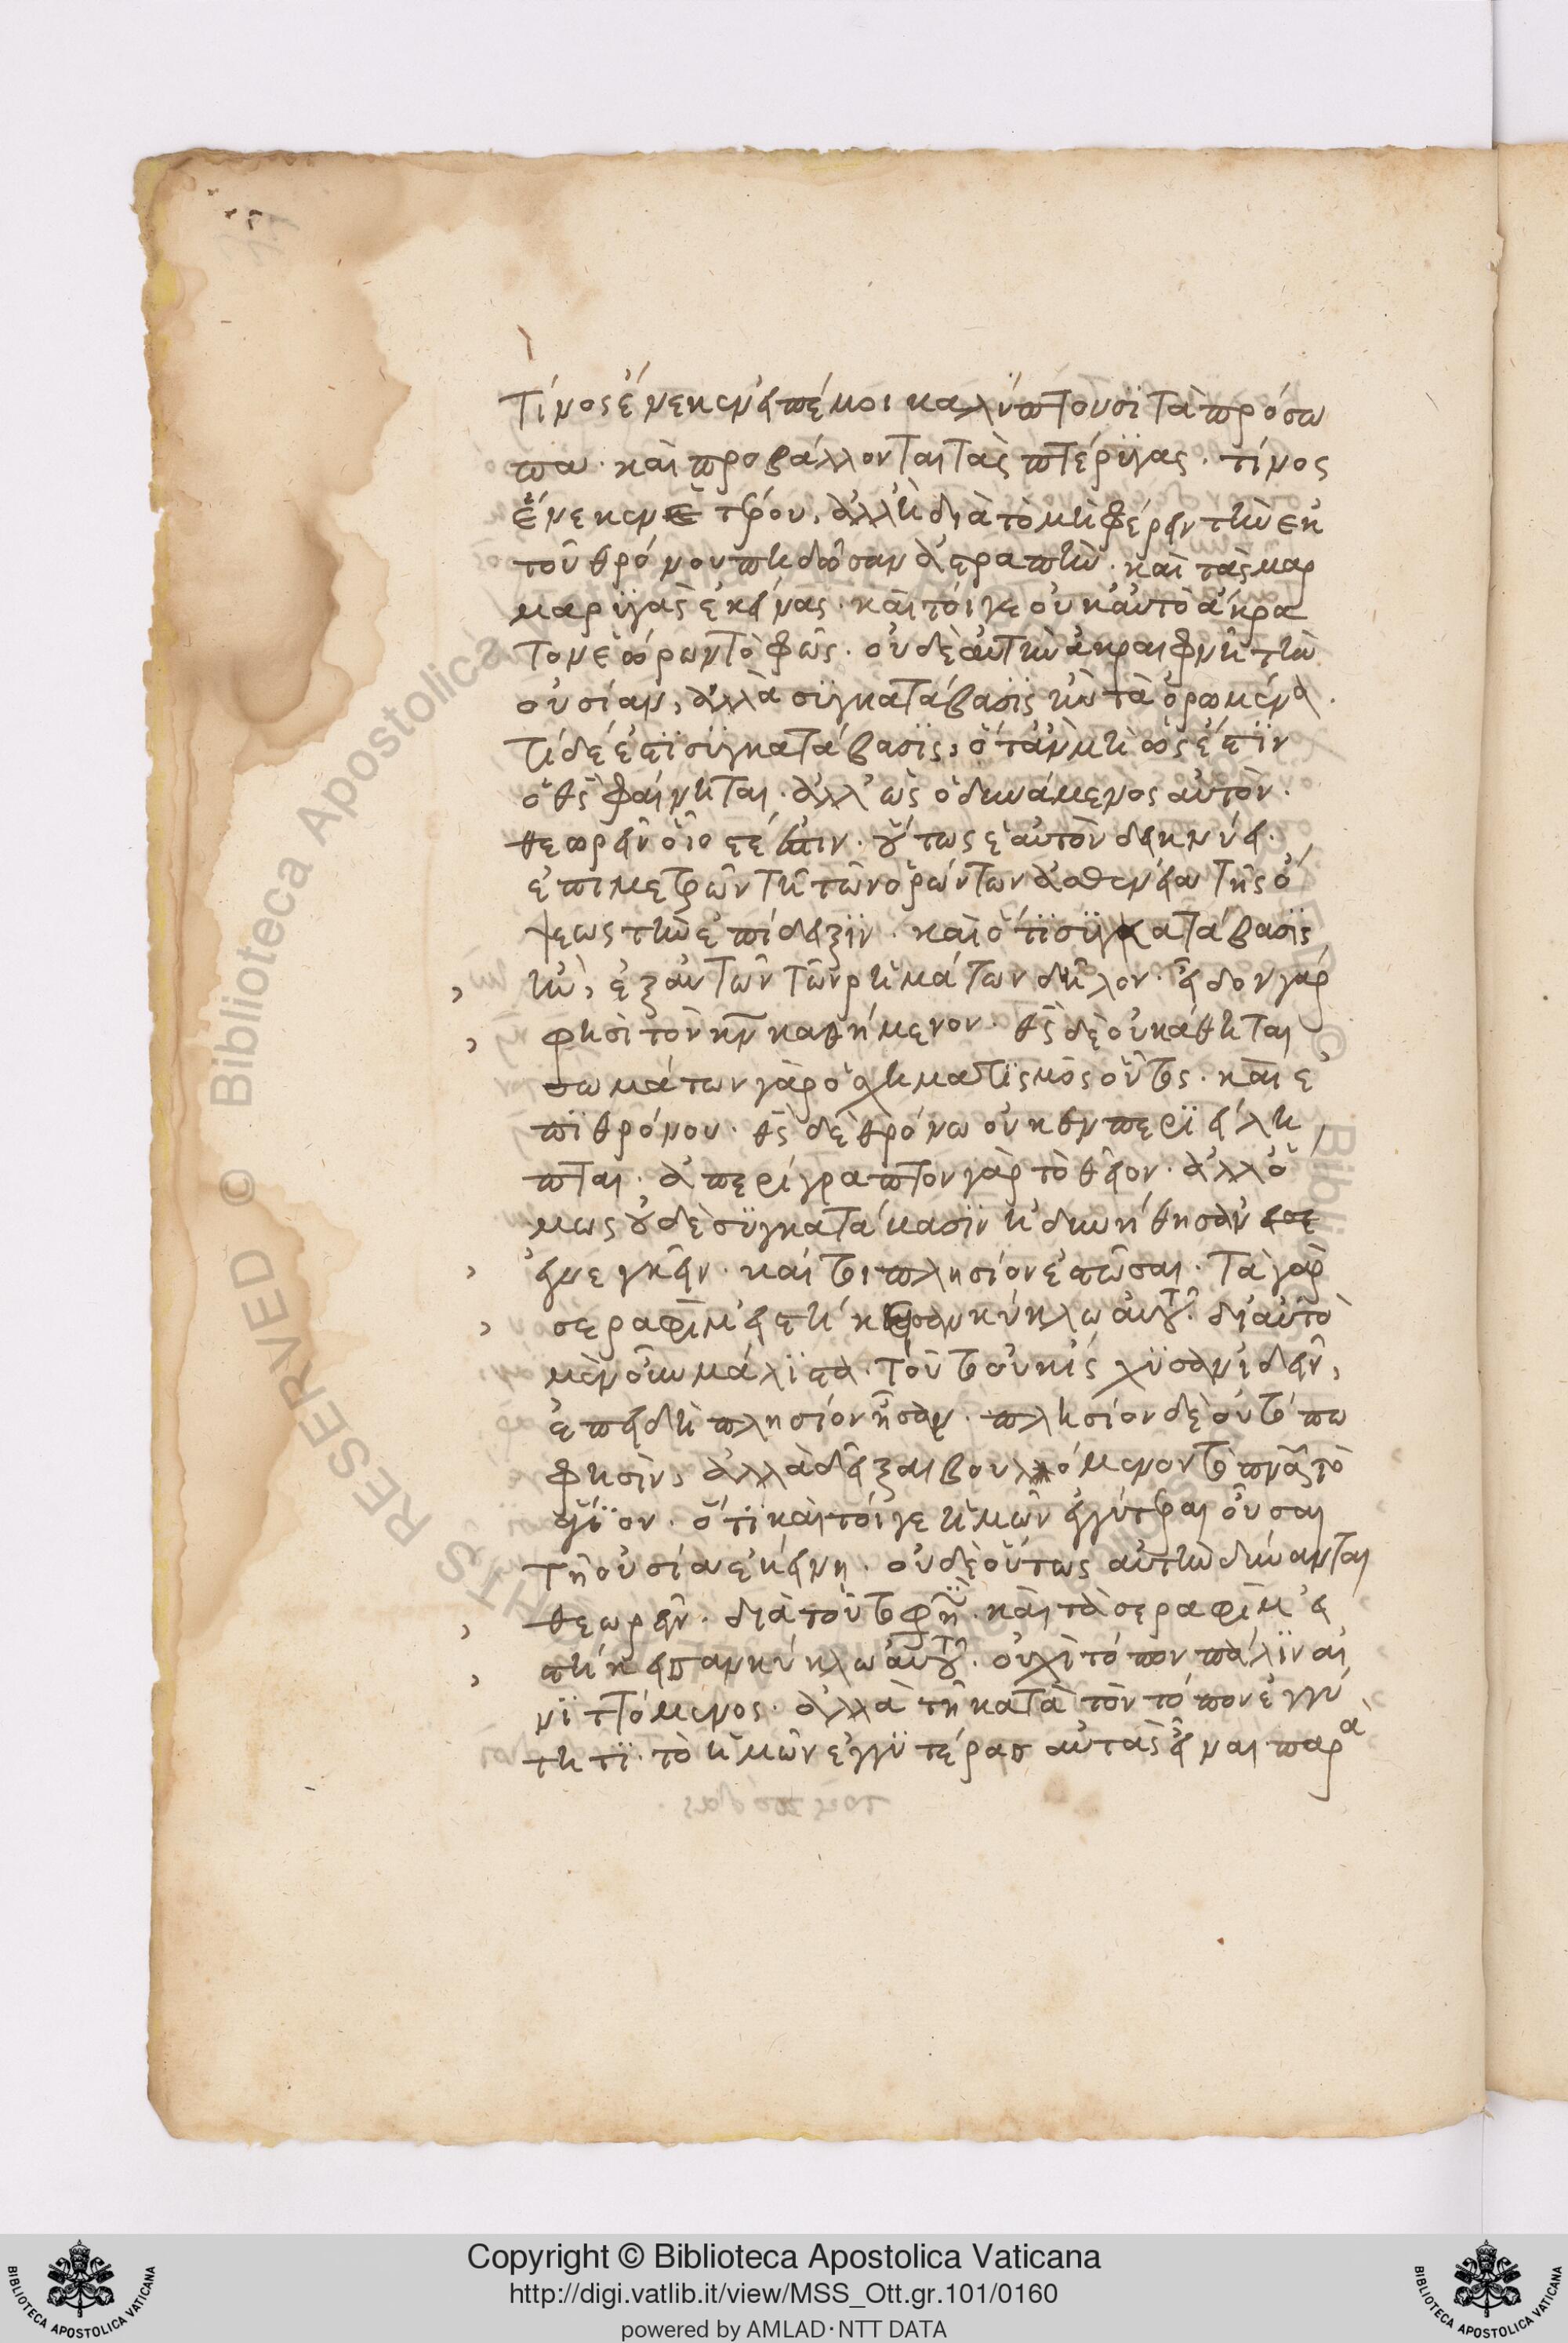 τίνος ἕνεκεν εἰπέ μοι καλύπτουσϊ τὰ πρόσω
πα· καὶ προβάλλονται τὰς πτέρϋγας· τίνος
ἕνεκεν ἑτέρου, ἀλλ' ἢ διὰ τὸ μὴ φέρειν τὴν ἐκ
τοῦ θρόνου πηδῶσαν ἀστραπὴν· καὶ τὰς μαρ
μαρϋγὰς ἐκείνας· καίτοιγε οὐκ αὐτὸ ἄκρα
τον ἑώρων τὸ φῶς· οὐδὲ αὐτὴν ἀκραιφνῆ τὴν
οὐσίαν, ἀλλὰ σϋγκατάβασϊς ἦν τὰ ὁρώμενα.
τί δέ ἐστϊ σϋγκατάβασϊς, ὅτἂν μὴ ὡς ἔστϊν
ὁ θς φαίνηται· ἀλλ' ὡς ὁ δυνάμενος αὐτὸν·
θεωρεῖν οἷός τέ ἐστιν· οὕτως ἑαυτὸν δεικνύει·
ἐπιμετρῶν τῆ τῶν ὁρώντων ἀσθενεία τῆς ὄ
ψεως τὴν ἐπίδειξϊν· καὶ ὅτϊ σϋγκατάβασϊς
ἦν, ἐξ αὐτῶν τῶν ρημάτων δῆλον· εἶδον γάρ
φησὶ τὸν κν καθήμενον· θς δὲ οὐ κάθηται
σωμάτων γὰρ ὁ σχηματϊσμὸς οὗτος· καὶ ἐ
πϊ θρόνου· θς δὲ θρόνω οὐκ ἐνπερϊείλη
πται· ἀπερίγραπτον γὰρ τὸ θεῖον· ἀλλ' ὅ
μως οὐδὲ σϋγκατάκασϊν ἠδυνήθησαν
ἐνεγκεῖν· καί τοι πλησίον ἑστῶσαι· τὰ γὰρ
σεραφὶμ εἱστήκεσαν κύκλω αὐτοῦ· δι' αὐτὸ
μὲν οὖν μάλϊστα· τοῦτο οὐκ ἴσχϋσαν ἰδεῖν,
ἐπειδὴ πλησίον ἦσαν· πλησίον δὲ οὐ τόπω
φησὶν, ἀλλὰ δεῖξαι βουλόμενον τὸ πνα τὸ
ἅγϊον· ὅτϊ καίτοιγε ἡμῶν ἐγγύτεραι οὖσαι
τῆ οὐσία ἐκείνη· οὐδὲ οὕτως αὐτὴν δύνανται
θεωρεῖν· διὰ τοῦτό φησὶ· καὶ τὰ σεραφὶμ εἱ
στήκεισαν κύκλω αὐτοῦ· οὐχὶ τόπον πάλϊν αἰ
νϊττόμενος· ἀλλὰ τῆ κατὰ τὸν τόπον ἐγγύ
τητϊ· τὸ ἡμῶν ἐγγϋτέρας αὐτὰς εἶναι παρα